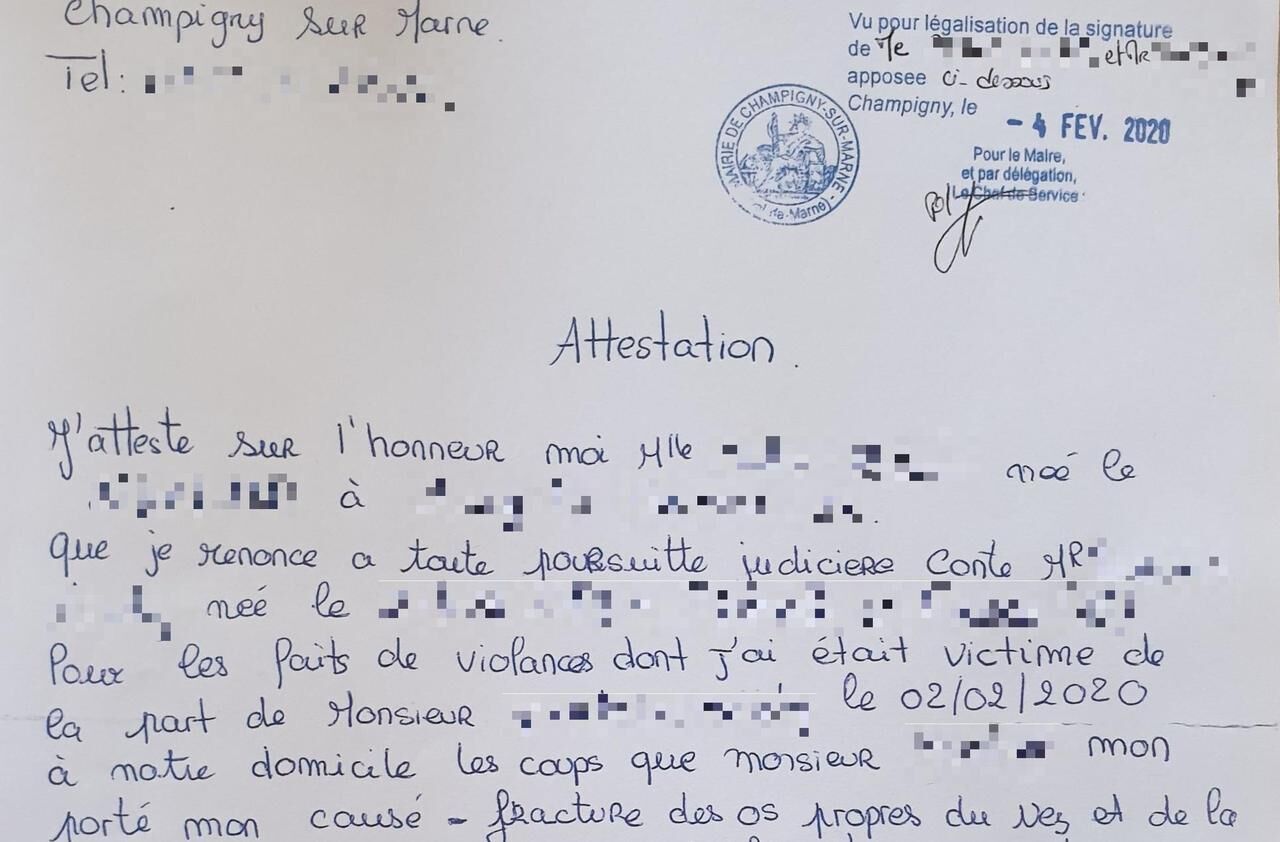 Champigny sur Marne.
Tel :
Vu pour légalisation de la signature
de Me et Mr
apposee ci-dessous
Champigny, le
- 4 FEV. 2020
Pour le Maire,
et par délégation,
Le Chef de Service
MAIRIE DE CHAMPIGNY-SUR-MARNE - de-Marne)
Attestation.
J'atteste sur l'honneur moi Mlle neé le
à
que je renonce a toute poursuitte judiciere Conte MR
neé le
Pour les faits de violances dont j'ai était victime de
la part de Monsieur le 02/02/2020
à notre domicile les coups que monsieur mon
porté mon causé - fracture des os propres du Nez et de la